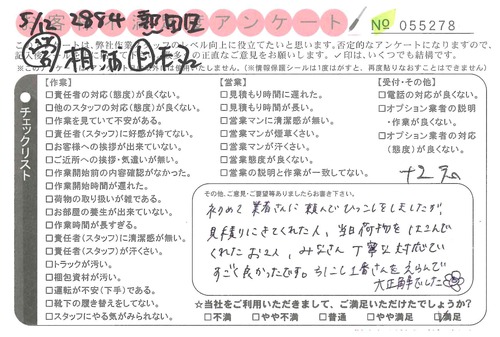 5/12 2984 熱田区
お客様不満足度アンケート
No 055278
このアンケートは、弊社作業スタッフのレベル向上に役立てたいと思います。否定的なアンケートになりますので、
ご満足いただけましたらお客様の正直なご意見をお願いします。✓印は、いくつでも結構です。
チェックリスト
【作業】
□責任者の対応(態度)が良くない。
□他のスタッフの対応(態度)が良くない。
□作業を見ていて不安がある。
□責任者(スタッフ)に好感が持てない。
□お客様への挨拶が出来ていない。
□ご近所への挨拶・気遣いが無い。
□作業開始前の内容確認がなかった。
□作業開始時間が遅れた。
□荷物の取り扱いが雑である。
□お部屋の養生が出来ていない。
□作業時間が長すぎる。
□責任者(スタッフ)に清潔感が無い。
□責任者(スタッフ)が汗くさい。
□トラックが汚い。
□梱包資材が汚い。
□運転が不安(下手)である。
□靴下の履き替えをしてない。
□スタッフにやる気がみられない。
【営業】
□見積もり時間に遅れた。
□見積もり時間が長い。
□営業マンに清潔感が無い。
□営業マンが煙草くさい。
□営業マンが汗くさい。
□営業態度が良くない。
□営業の説明と作業が一致してない。
【受付・その他】
□電話の対応が良くない。
□オプション業者の説明
・作業が良くない。
□オプション業者の対応
(態度)が良くない。
その他、ご意見・ご要望等ありましたらお書き下さい。
初めて業者さんに頼んでひっこしをしましたが、
見積りにきてくれた人、当日荷物をはこんで
くれたお2人、みなさん丁寧な対応で
すごく良かったです。
大正解でした
☆当社をご利用いただきまして、ご満足いただけたでしょうか?
□不満 □やや不満 □普通 □やや満足 □満足